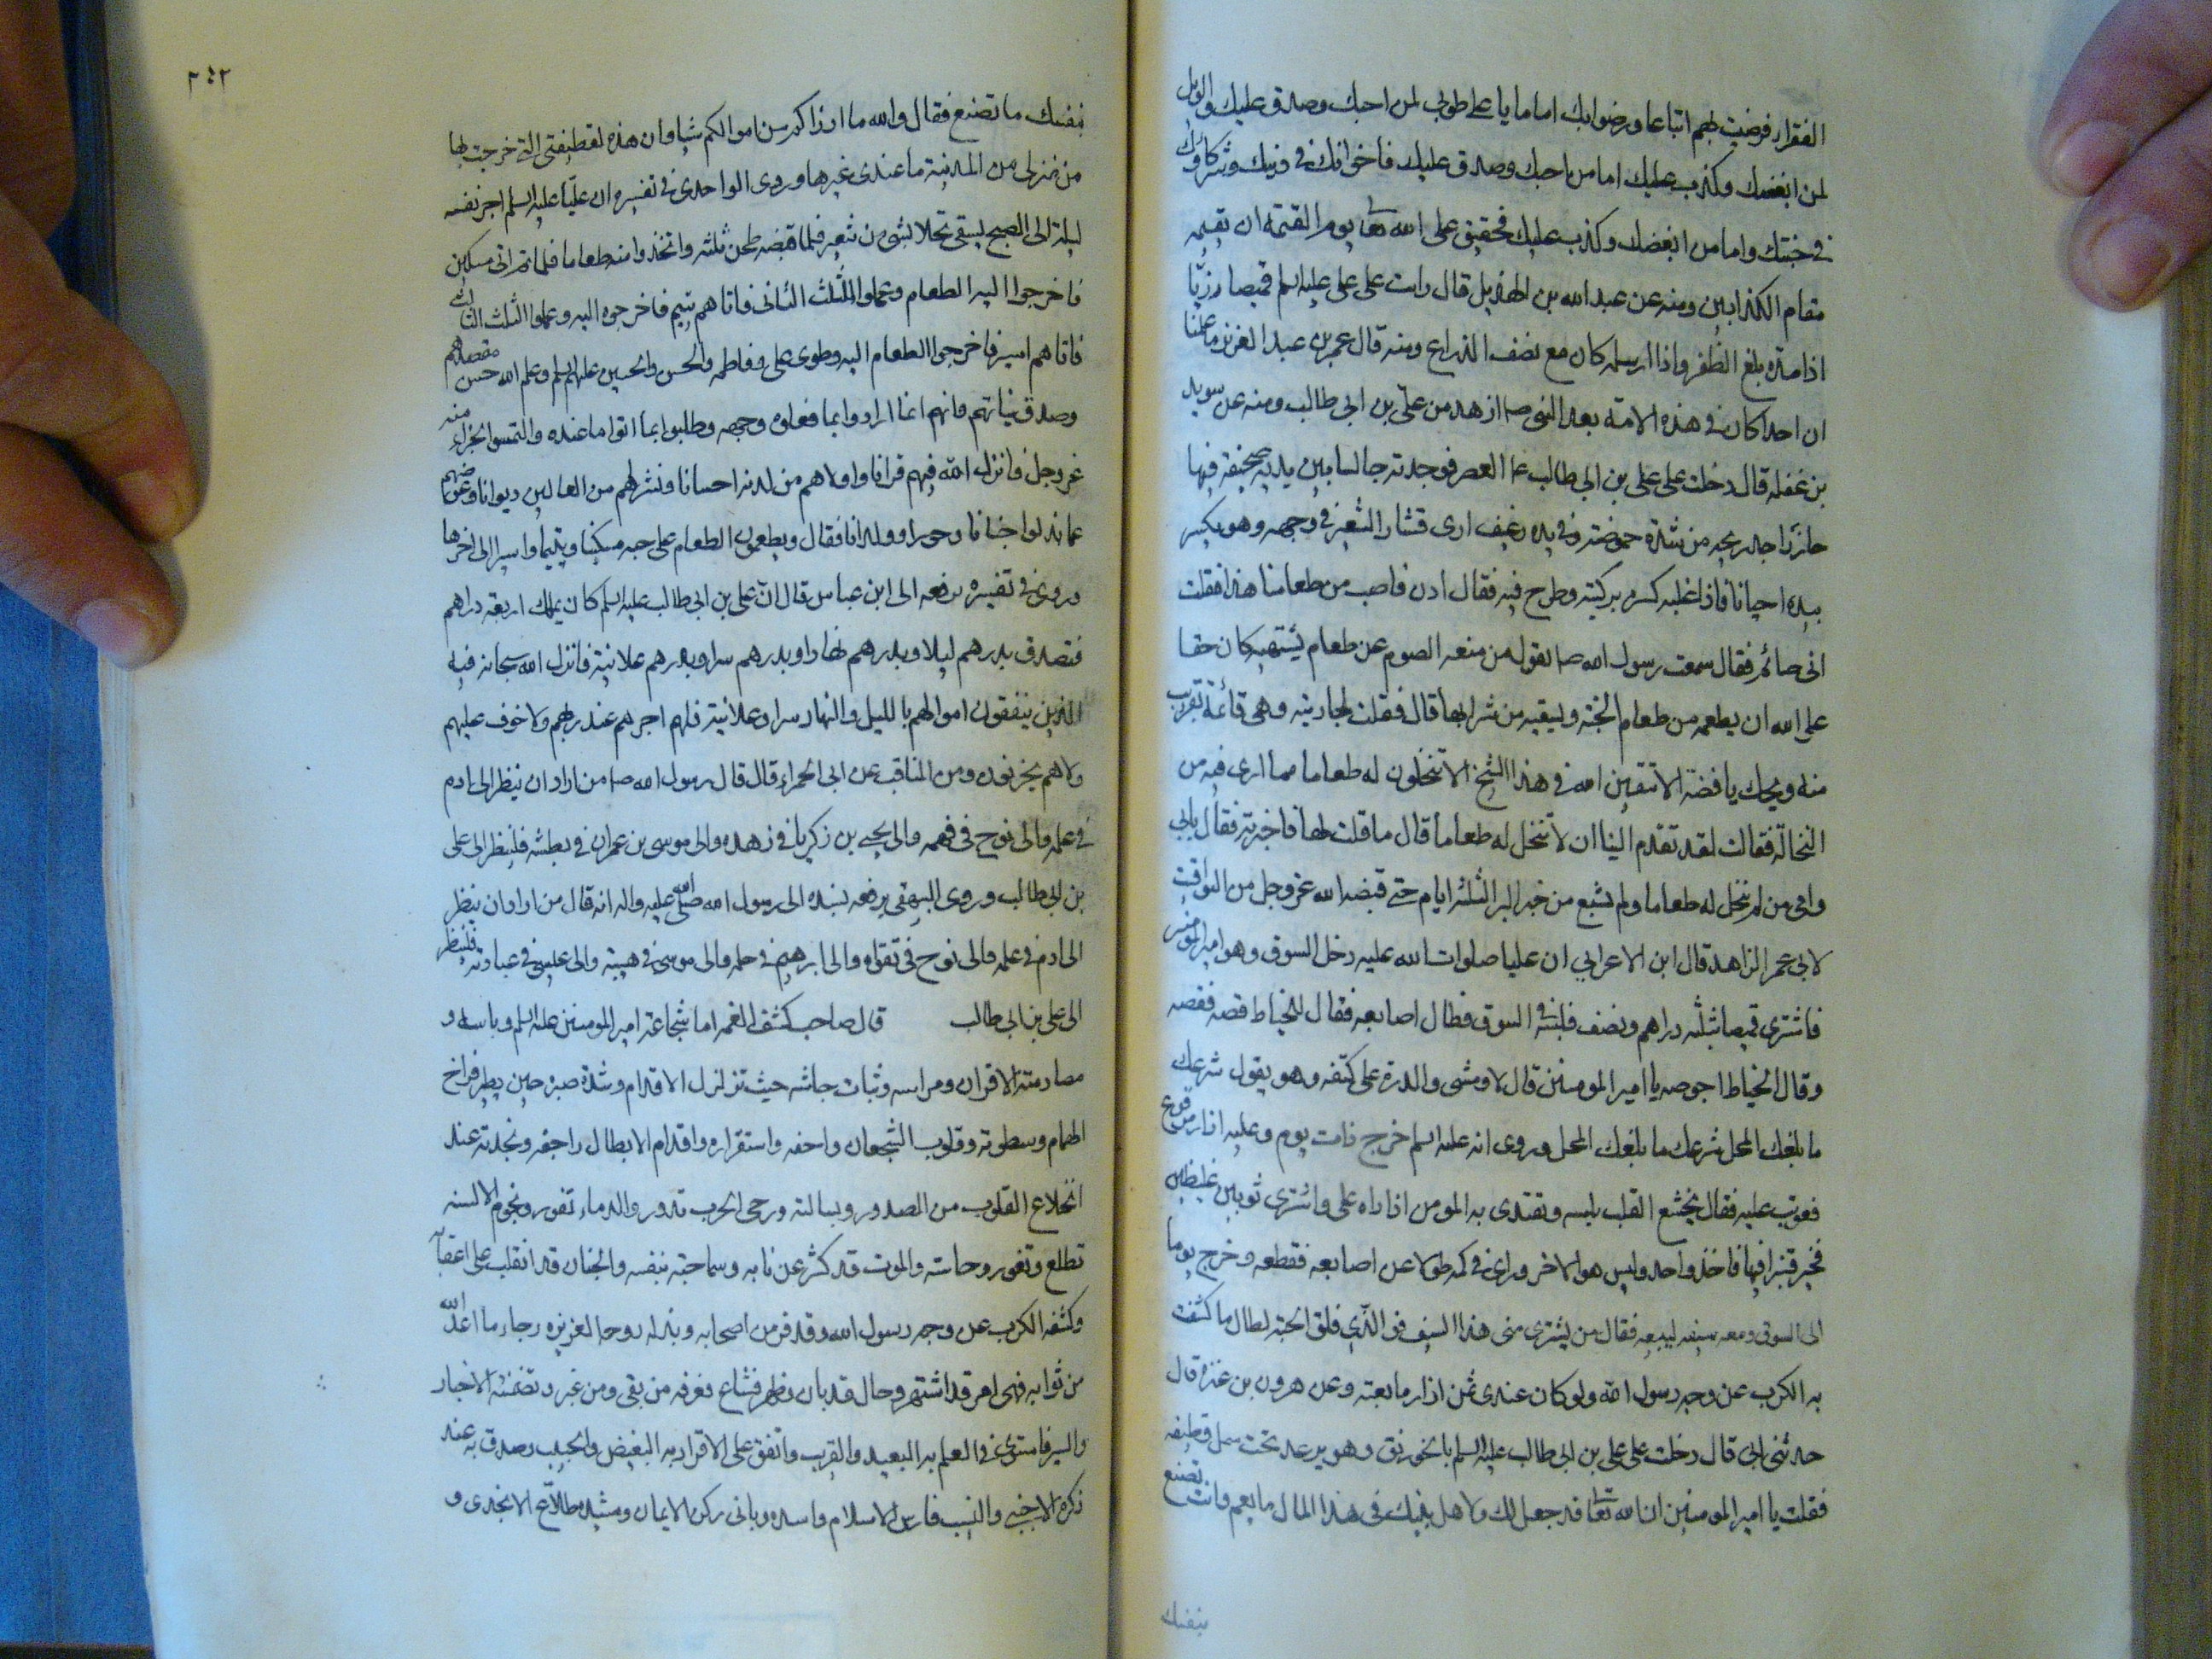 الفقراء فرضيت بهم اتباعا ورضوا بك اماما يا علي طوبى لمن احبك وصدق عليك والويل
لمن ابغضك وكذب عليك اما من احبك وصدق عليك فاخوانك في دينك وشركاؤك
في جنتك واما من ابغضك وكذب عليك فحقيق على الله تعا يوم القيمة ان يقيمه
مقام الكذابين ومنه عن عبد الله بن الهذيل قال رايت على علي عليه السلم قميصا رزيا
اذا مده بلغ الظفر واذا ارسله كان مع نصف الذراع ومنه قال عمر بن عبد العزيز ما علمنا
ان احدا كان في هذه الامة بعد النبي صا ازهد من علي بن ابي طالب ومنه عن سويد
بن غفله قال دخلت على علي بن ابي طالب عا العصر فوجدته جالسا بين يديه صحيفة فيها
حازرا اجد ريحه من شدة حموضته وفي يده رغيف ارى قشار الشعير في وجهه وهو يكسر
بيده احيانا فاذا غلبه كسره بركبته وطرح فيه فقال ادن فاصب من طعامنا هذا فقلت
اني صائم فقال سمعت رسول الله صا يقول من منعه الصوم عن طعام يشتهيه كان حقا
على الله ان يطعمه من طعام الجنة ويسقيه من شرابها قال فقلت لجاريته وهي قائمة بقرب
منه ويحك يا فضة الا تتقين الله في هذا الشيخ الا تنخلون له طعاما مما ارى فيه من
النخالة فقالت لقد تقدم الينا ان لا ننخل له طعاما قال ما قلت لها فاخبرته فقال بابي
وامي من لم ينخل له طعاما ولم يشبع من خبز البر الثلثة ايام حتى قبضه الله عز وجل من اليواقيت
لابي عمر الزاهد قال ابن الاعرابي ان عليا صلوات الله عليه دخل السوق وهو امير المومنين
فاشترى قميصا بثلثه دراهم ونصف فلبسه في السوق فطال اصابعه فقال للخياط قصه فقصه
وقال الخياط احوصه يا امير المومنين قال لا ومشى والدرة على كتفه وهو يقول شرعك
ما بلغك المحل شرعك ما بلغك المحل وروى انه عليه السلم خرج ذات يوم وعليه ازار مرقوع
فعوتب عليه فقال يخشع القلب بلبسه ويقتدى به المومن اذا راه علي واشترى ثوبين غليظين
فخير قنبرا فيها فاخذ واحد ولبس هو الاخر وراى في كمه طولا عن اصابعه فقطعه وخرج يوما
الى السوق ومعه سيفه ليبيعه فقال من يشترى مني هذا السيف فو الذي فلق الحبة لطال ما كشفت
به الكرب عن وجه رسول الله ولو كان عندى ثمن ازار ما بعته وعن هرون بن عنزه قال
حدثني ابي قال دخلت على علي بن ابي طالب عليه السلم بالخورنق وهو يرعد تحت سمل قطيفه
فقلت يا امير المومنين ان الله تعا قد جعل لك ولاهل بيتك في هذا المال ما يعم وانت تصنع
بنفسك
٢٤٢
بنفسك ما تصنع فقال والله ما ارزاكم من اموالكم شيا وان هذه لقطيفتى التى خرجت بها
من منزلى من المدينة ما عندى غيرها وروى الواحدى في تفسيره ان عليا عليه السلم اجر نفسه
ليلة الى الصبح يسقى نخلا بشئ من شعير فلما قبضه طحن ثلثه واتخذوا منه طعاما فلما تم اتى مسكين
فاخرجوا اليه الطعام وعملوا الثلث الثانى فاتاهم يتيم فاخرجوه اليه وعملوا الثلث الثالث
فاتاهم اسير فاخرجوا الطعام اليه وطوى علي وفاطمه والحسن والحسين عليهم السلم وعلم الله حسن مقصدهم
وصدق نياتهم وانهم انما ارادوا بما فعلوه وجهه وطلبوا بما اتوا ما عنده والتمسوا الجزاء منه
عز وجل وانزل الله فيهم قرانا واولاهم من لدنه احسانا ونشر لهم من العالمين ديوانا وعوضهم
عما بذلوا جنانا وحورا وولدانا فقال ويطعمون الطعام على حبه مسكينا ويتيما واسيرا الى اخرها
وروى في تفسيره يرفعه الى ابن عباس قال ان علي بن ابي طالب عليه السلم كان يملك اربعه دراهم
فتصدق بدرهم ليلا وبدرهم نهارا وبدرهم سرا وبدرهم علانية فانزل الله سبحانه فيه
الذين ينفقون اموالهم بالليل والنهار سرا وعلانية فلهم اجرهم عند ربهم ولا خوف عليهم
ولا هم يحزنون ومن المناقب عن ابي الحمراء قال قال رسول الله صا من اراد ان ينظر الى ادم
في علمه والى نوح في فهمه والى يحيى بن زكريا في زهده والى موسى بن عمران في بطشه فلينظر الى علي
بن ابي طالب وروى البيهقي يرفعه بسنده الى رسول الله صلى الله عليه واله انه قال من اراد ان ينظر
الى ادم في علمه والى نوح في تقواه والى ابرهيم في حلمه والى موسى في هيبته والى عيسى في عبادته فلينظر
الى علي بن ابي طالب قال صاحب كشف الغمه اما شجاعة امير المومنين عليه السلم وباسه و
مصادمته الاقران ومراسه وثبات جاشه حيث تزلزل الاقدام وشدة صبره حين يطير فراخ
الهام وسطوته وقلوب الشجعان واجفه واستقراره واقدام الابطال راجفه ونجدته عند
انخلاع القلوب من الصدور وبسالته ورحى الحرب تدور والدماء تفور ونجوم الاسنه
تطلع وتغور وحماسته والموت قد كشر عن نابه وسماحته بنفسه والجنان قد انقلب على اعقابه
وكشفه الكرب عن وجه رسول الله وقد فر من اصحابه وبذله روحه العزيزه رجاء ما اعد الله
من ثوابه فهى امر قد اشتهر وحال قد بان وظهر فشاع فعرفه من بقى ومن غبر وتضمنته الاخبار
والسير فاستوى في العلم به البعيد والقريب واتفق على الاقرار به البغيض والحبيب وصدق به عند
ذكره الاجنبي والنسيب فارس الاسلام واسده وبانى ركن الايمان ومشيده طلاع الانجدى و